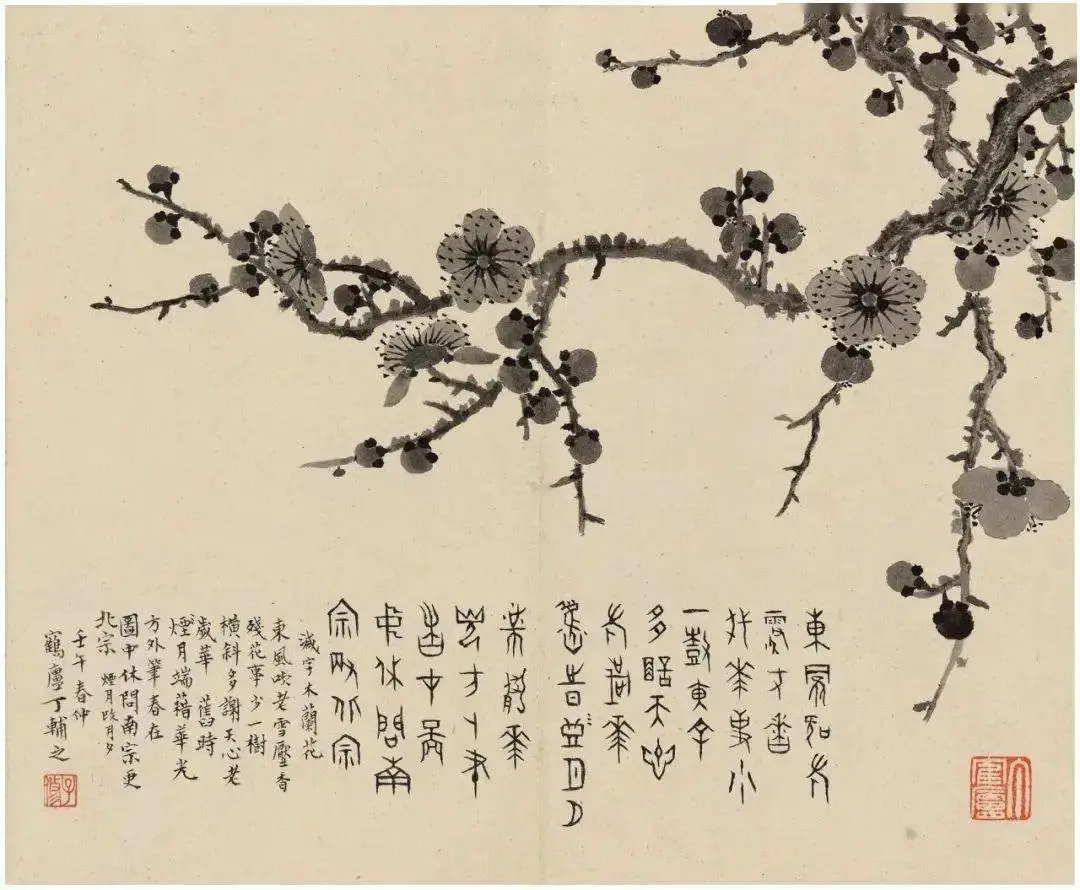 東風吹老
雪壓香
殘花事少
一樹橫斜
多謝天心
老歲華
舊時月夕
端藉華
光方外筆
春在圖
中休問南
宗更北宗
減字木蘭花
東風吹老雪壓香
殘花事少一樹
橫斜多謝天心老
歲華 舊時
煙月端藉華光
方外筆春在
圖中休問南宗更
北宗 煙月改月夕
壬午春仲
鶴廬丁輔之